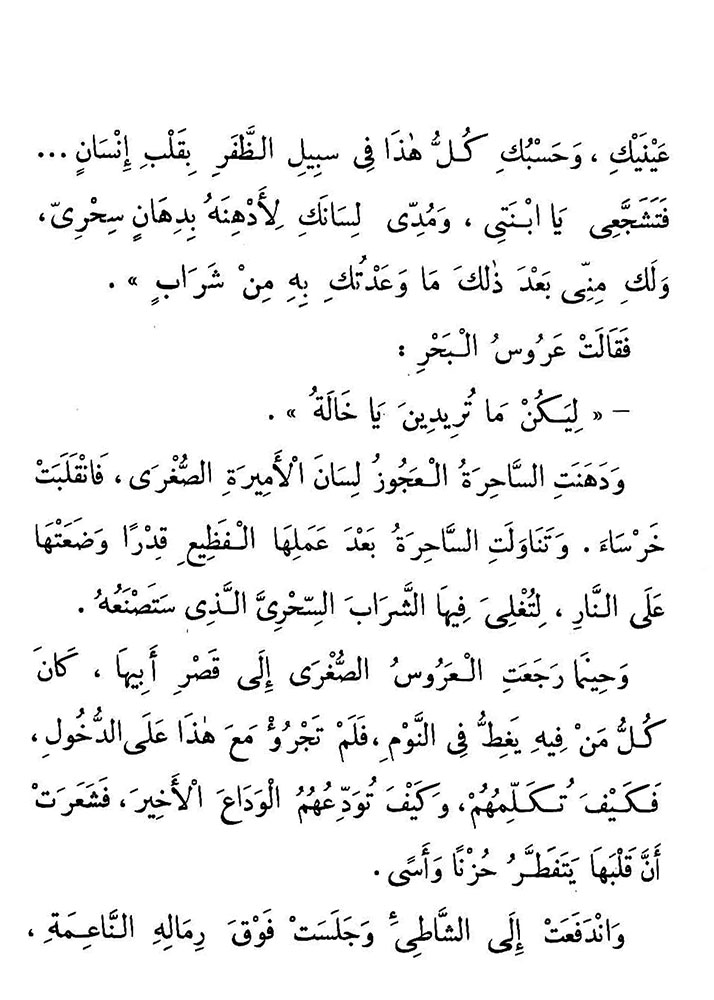 عَيْنَيْكِ ، وَحَسْبُكِ كُلُّ هٰذَا فِى سَبِيلِ الظَّفَرِ بِقَلْبِ إِنْسَانٍ ...
فَتَشَجَّعِى يَا ابْنَتِى ، وَمُدِّى لِسَانَكِ لِأَدْهِنَهُ بِدِهَانٍ سِحْرِىّ،
وَلَكِ مِنِّى بَعْدَ ذٰلِكَ مَا وَعَدْتُكِ بِهِ مِنْ شَرَابٍ » .
فَقَالَتْ عَرُوسُ الْبَحْرِ :
– « لِيَكُنْ مَا تُرِيدِينَ يَا خَالَةُ » .
وَدَهَنَتِ السَّاحِرَةُ الْعَجُوزُ لِسَانَ الْأَمِيرَةِ الصُّغْرَى ، فَانْقَلَبَتْ
خَرْسَاءَ . وَتَنَاوَلَتِ السَّاحِرَةُ بَعْدَ عَمَلِهَا الْفَظِيعِ قِدْرًا وَضَعَتْهَا
عَلَى النَّارِ ، لِتُغْلِىَ فِيهَا الشَّرَابَ السِّحْرِىَّ الَّذِى سَتَصْنَعُهُ .
وَحِينَمَا رَجَعَتِ الْعَرُوسُ الصُّغْرَى إِلَى قَصْرِ أَبِيهَا ، كَانَ
كُلُّ مَنْ فِيهِ يَغِطُّ فِى النَّوْمِ ، فَلَمْ تَجْرُؤْ مَعَ هٰذَا عَلَى الدُّخُولِ ،
فَكَيْفَ تُكَلِّمُهُمْ، وَكَيْفَ تُوَدِّعُهُمُ الْوَدَاعَ الْأَخِيرَ ، فَشَعَرَتْ
أَنَّ قَلْبَهَا يَتَفَطَّرُ حُزْنًا وَأَسًى .
وَانْدَفَعَتْ إِلَى الشَّاطِئِ وَجَلَسَتْ فَوْقَ رِمَالِهِ النَّاعِمَةِ ،